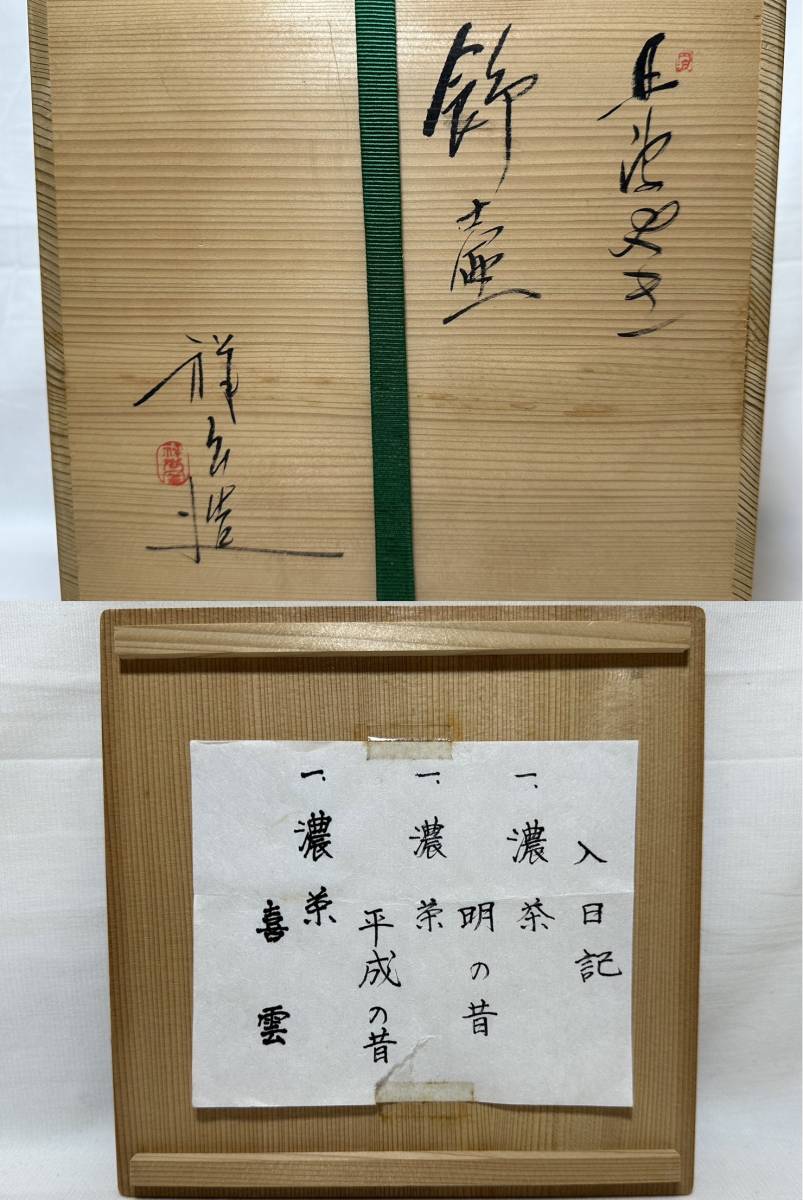 丹波やき
飾壷
入日記
一、濃茶
明の昔
一、濃茶
平成の昔
一、濃茶
喜雲